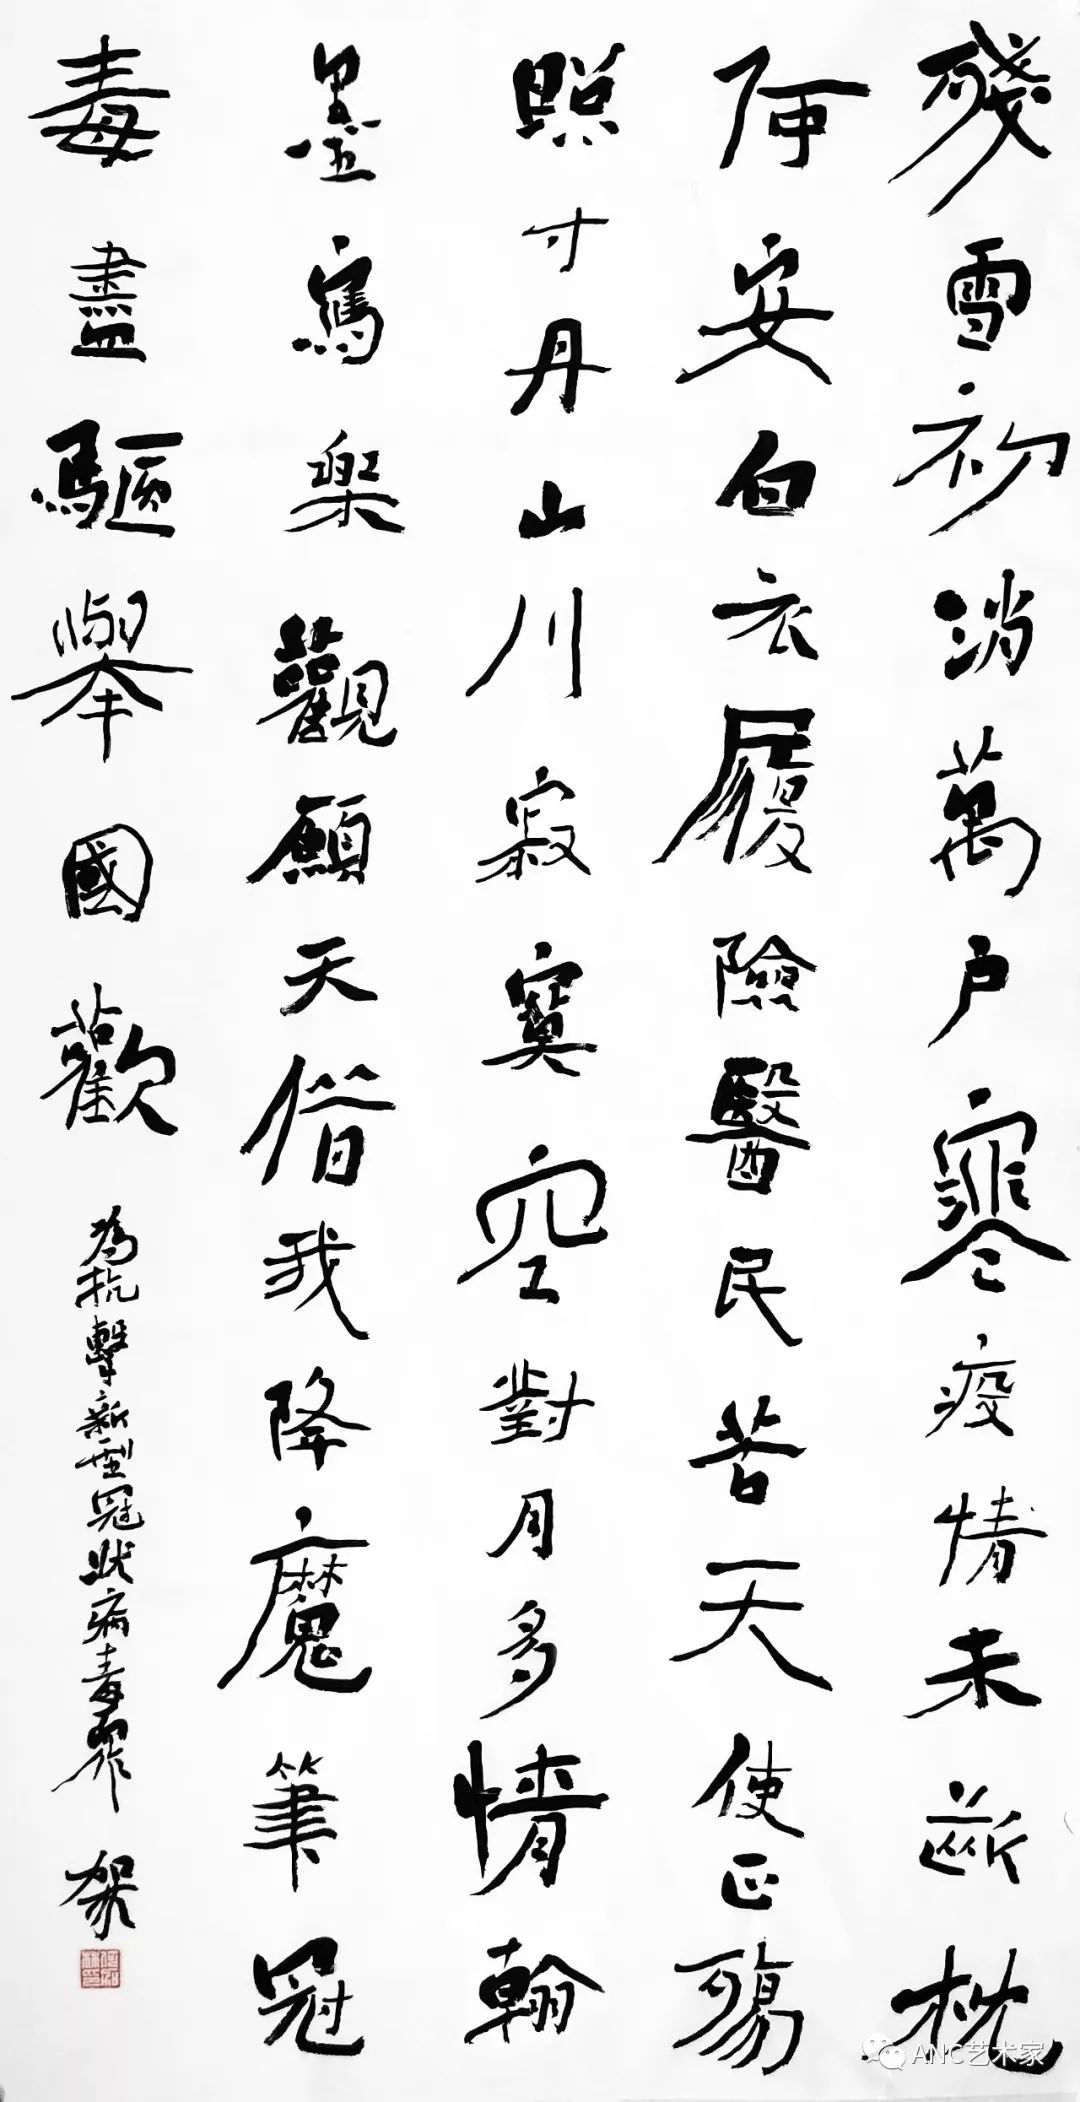 殘雪初消萬戶寒疫情未斷枕
何安白衣履險醫民苦天使正殤
照寸丹山川寂寞空對月多情翰
墨寫樂觀願天借我降魔筆冠
毒盡驅舉國歡
為抗擊新型冠狀病毒而作 加林
何加林印
ANC艺术家